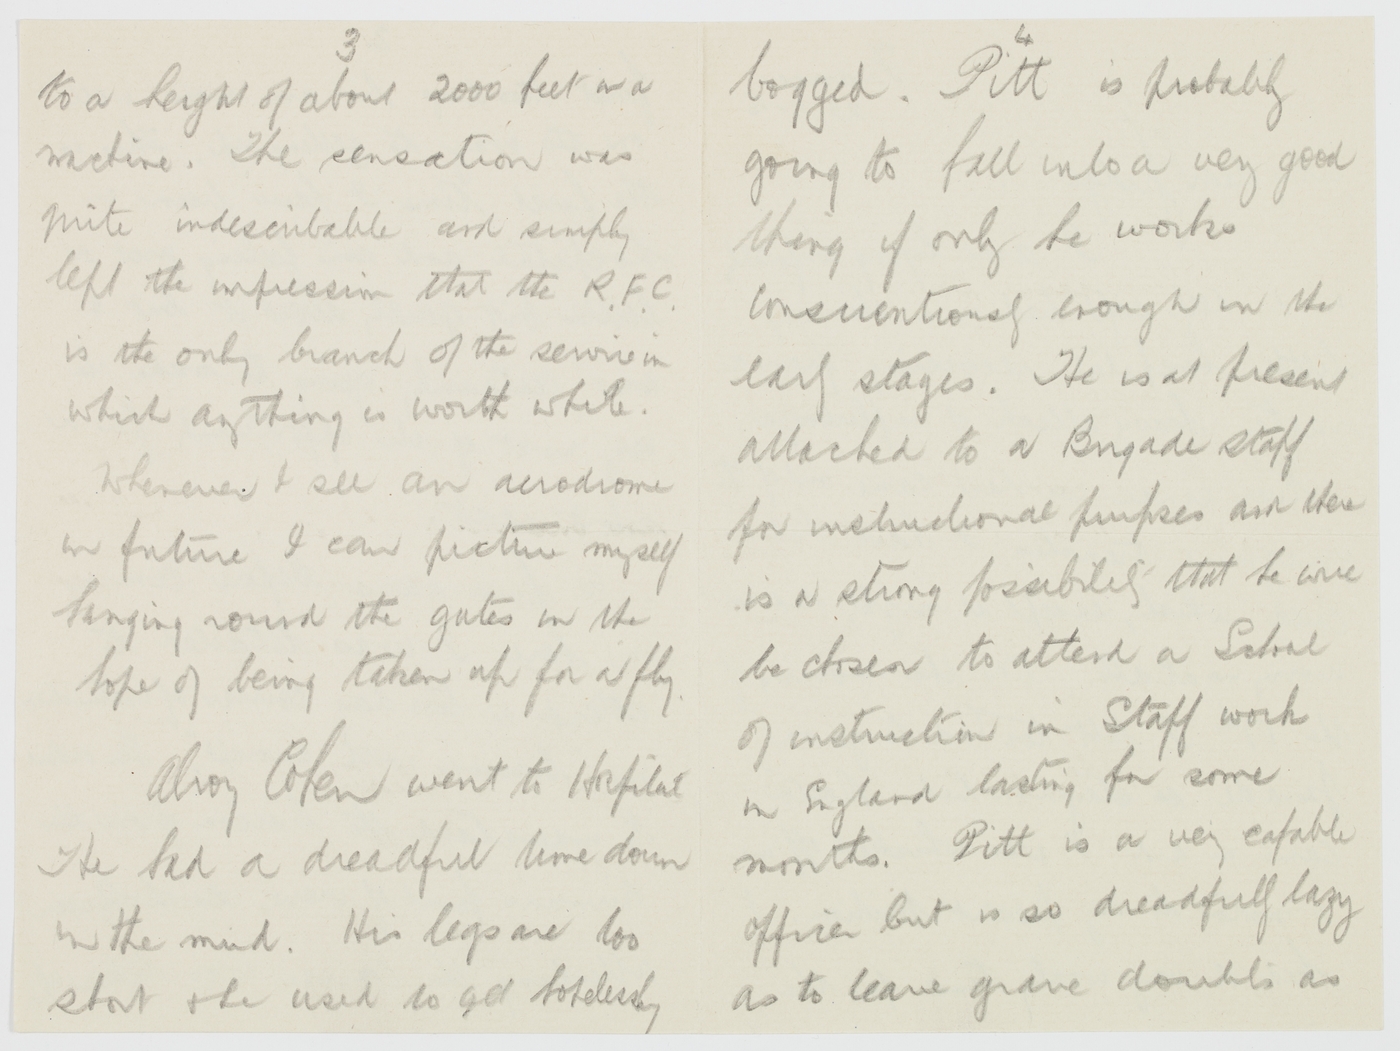 3
to a height of about 2000 feet in a
machine. The sensation was
quite indescribable and simply
left the impression that the R.F.C.
is the only branch of the service in
which anything is worth while.
Whenever I see an aerodrome
in future I can picture myself
hanging round the gates in the
hope of being taken up for a fly.
Alroy Cohen went to Hospital
He had a dreadful time down
in the mud. His legs are too
short & he used to get hopelessly
4
bogged. Pitt is probably
going to fall into a very good
thing if only he works
conscientiously enough in the
early stages. He is at present
attached to a Brigade Staff
for instructional purposes and there
is a strong possibility that he will
be chosen to attend a School
of instruction in Staff work
in England lasting for some
months. Pitt is a very capable
officer but is so dreadfully lazy
as to leave grave doubts as